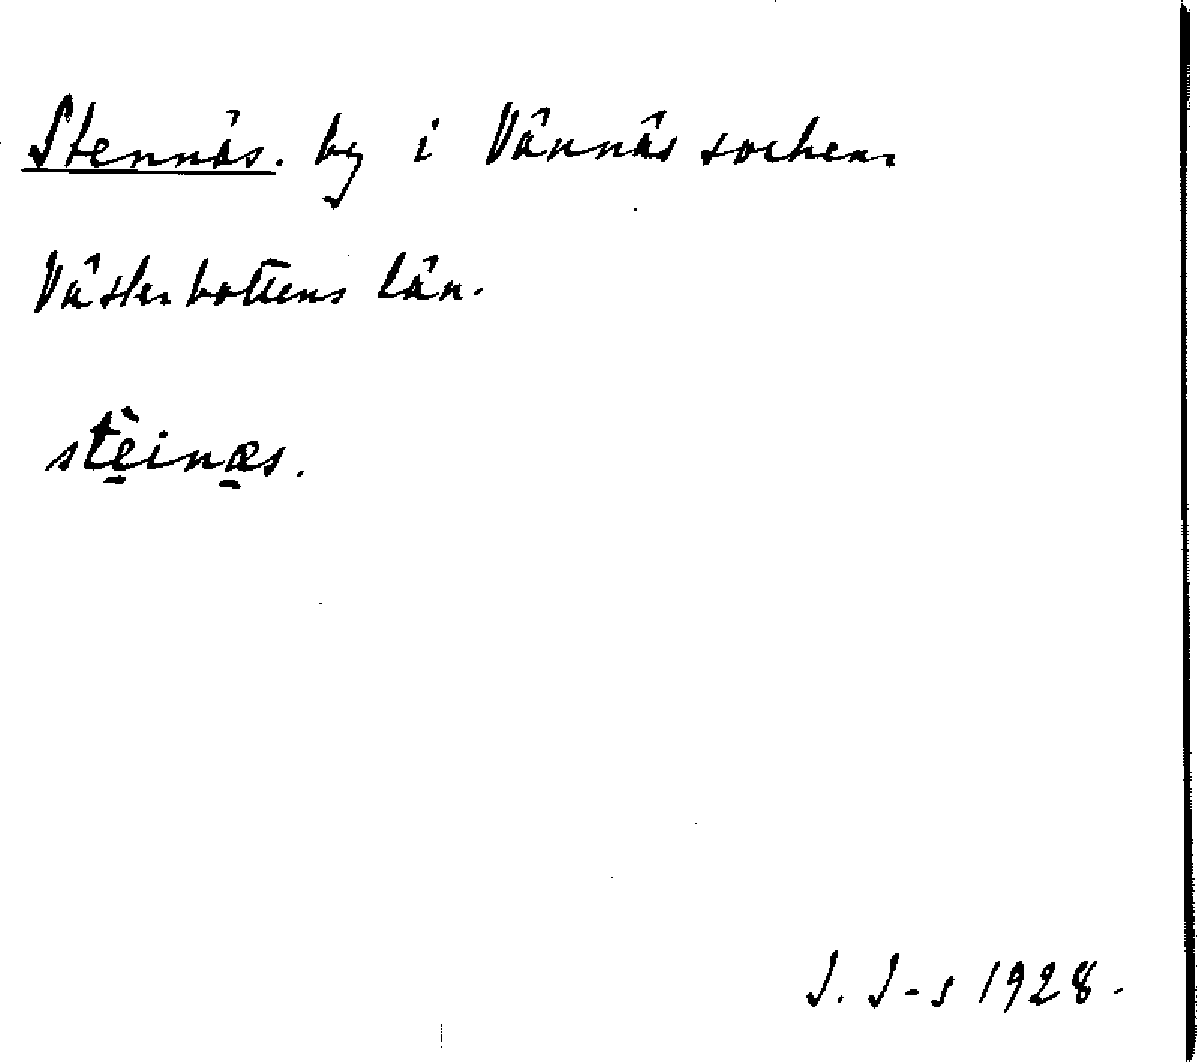 Stennäs. by i Vännäs socken
Västerbottens län.
stè̱inæ̱s.
J. J-s 1928.